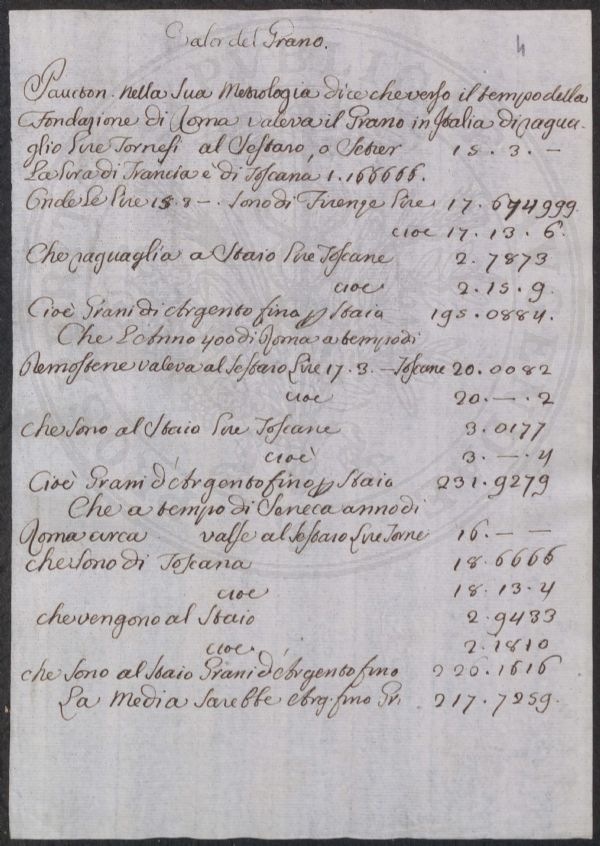 Valor del Grano.
4
Paucton. nella sua Metrologia dice che verso il tempo della
Fondazione di Roma valeva il Grano in Italia di ragua-
glio Lire Tornesi al Sestaro, o Setier 15. 3. —
La Lira di Francia è di Toscana 1.166666.
Onde Le Lire 15. 3 —. sono di Firenze Lire 17. 674999.
cioe 17. 13. 6.
Che raguaglia a Staio Lire Toscane 2. 7873
cioe 2. 15. 9.
Cioè Grani di Argento fino p Staio 195. 0884.
Che L'Anno 400 di Roma a tempo di
Demostene valeva al Sestaro Lire 17. 3. — Toscane 20. 0082
cioe 20. —. 2
che sono al Staio Lire Toscane 3. 0177
cioè 3. —. 4
Cioè Grani d'Argento fino p Staio 231. 9279
Che a tempo di Seneca anno di
Roma circa valse al Sestaro Lire Torne 16. — —
che sono di Toscana 18. 6666
cioe 18. 13. 4
che vengono al Staio 2. 9433
cioe 2. 18 10
che sono al Staio Grani d'Argento fino 226. 1616
La Media sarebbe Arg. fino Gri 217. 7259.